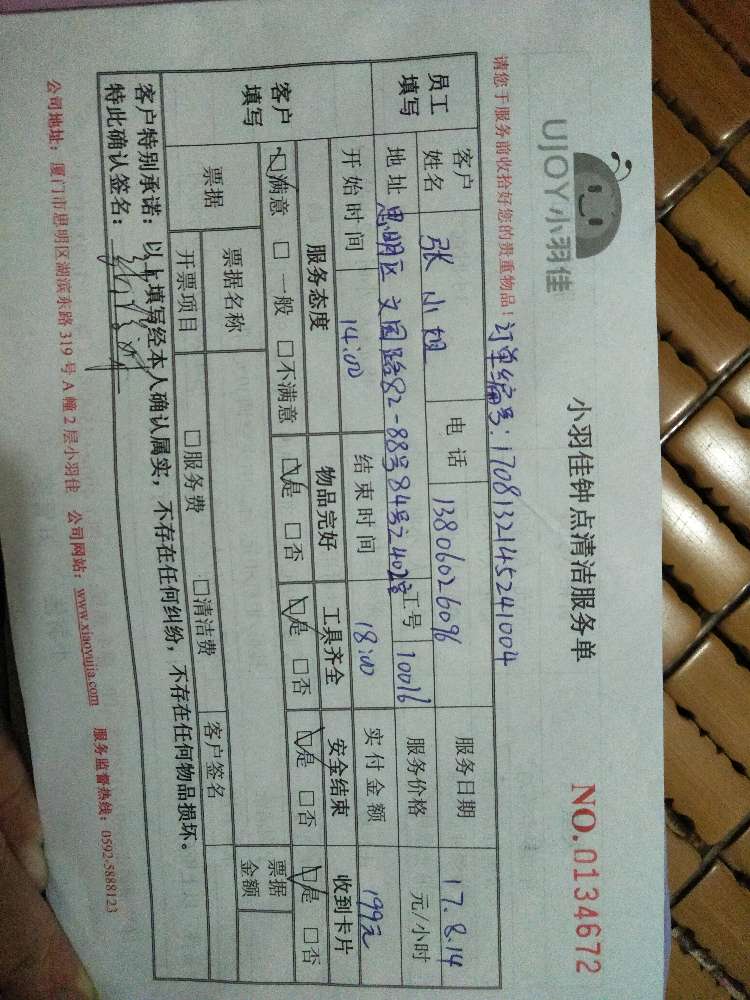 UJOY小羽佳
小羽佳钟点清洁服务单
NO.0134672
请您于服务前收拾好您的贵重物品！
订单编号：1708132145241004
员工填写
客户姓名 张小姐 电话 13806026096 服务日期 17.8.14
地址 思明区文园路82-88号84号2402室 工号 10016 服务价格 元/小时
开始时间 14:00 结束时间 18:00 实付金额 199元
客户填写
服务态度 物品完好 工具齐全 安全结束 收到卡片
☑满意 □一般 □不满意 ☑是 □否 ☑是 □否 ☑是 □否 ☑是 □否
票据 票据名称 票据金额
开票项目 □服务费 □清洁费 客户签名
客户特别承诺：以上填写经本人确认属实，不存在任何纠纷，不存在任何物品损坏。
特此确认签名：
公司地址：厦门市思明区湖滨东路319号A幢2层小羽佳 公司网站：www.xiaoyujia.com 服务监督热线：0592-5888123